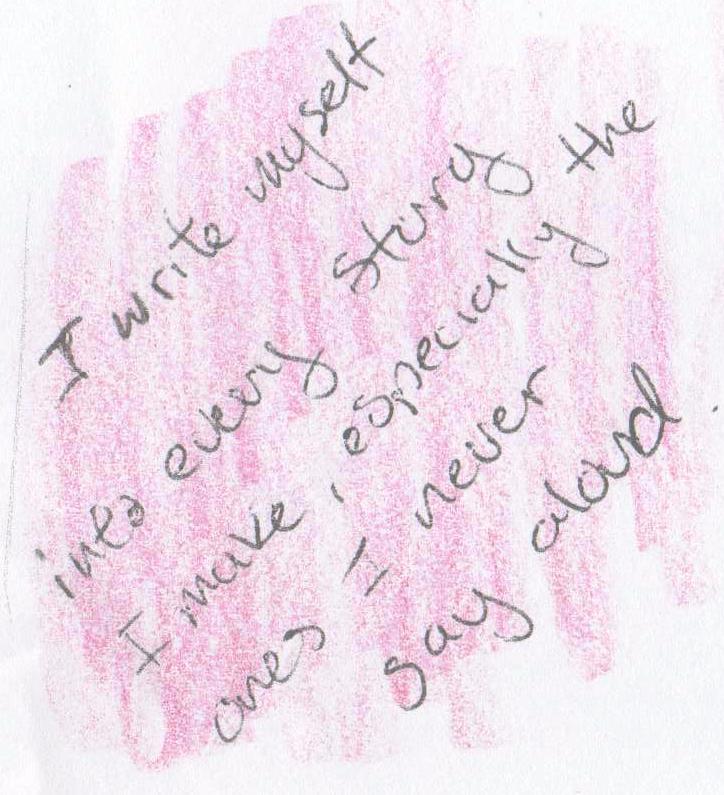 I write myself
into every story
I make, especially the
ones I never
say aloud.